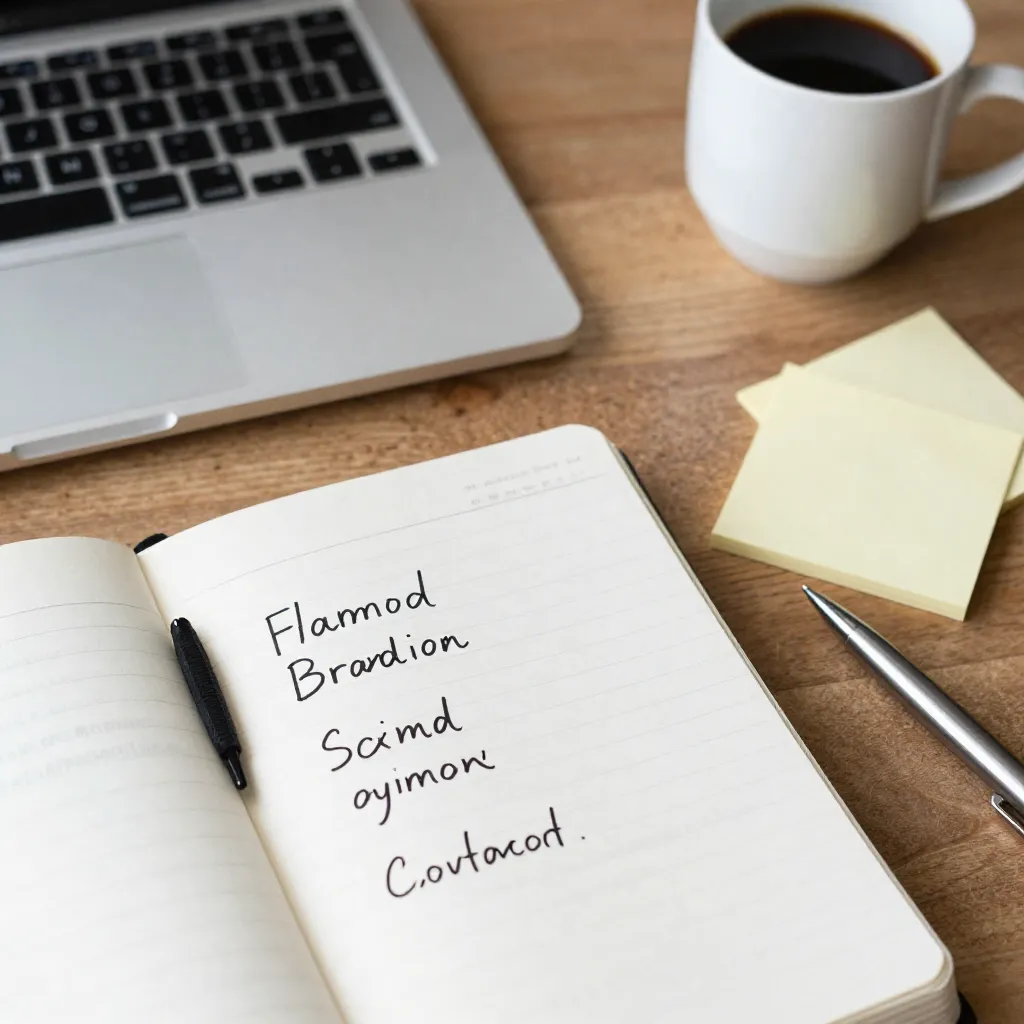 Flammod
Brandion
Scimd
oyimon
C.ovtacort.